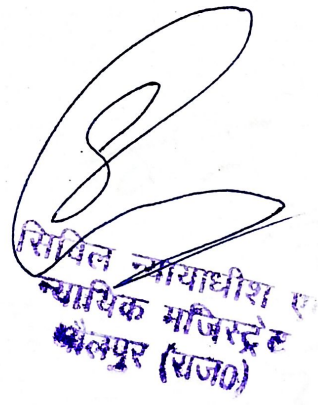 सिविल न्यायाधीश ए
न्यायिक मजिस्ट्रेट
धौलपुर (राज0)